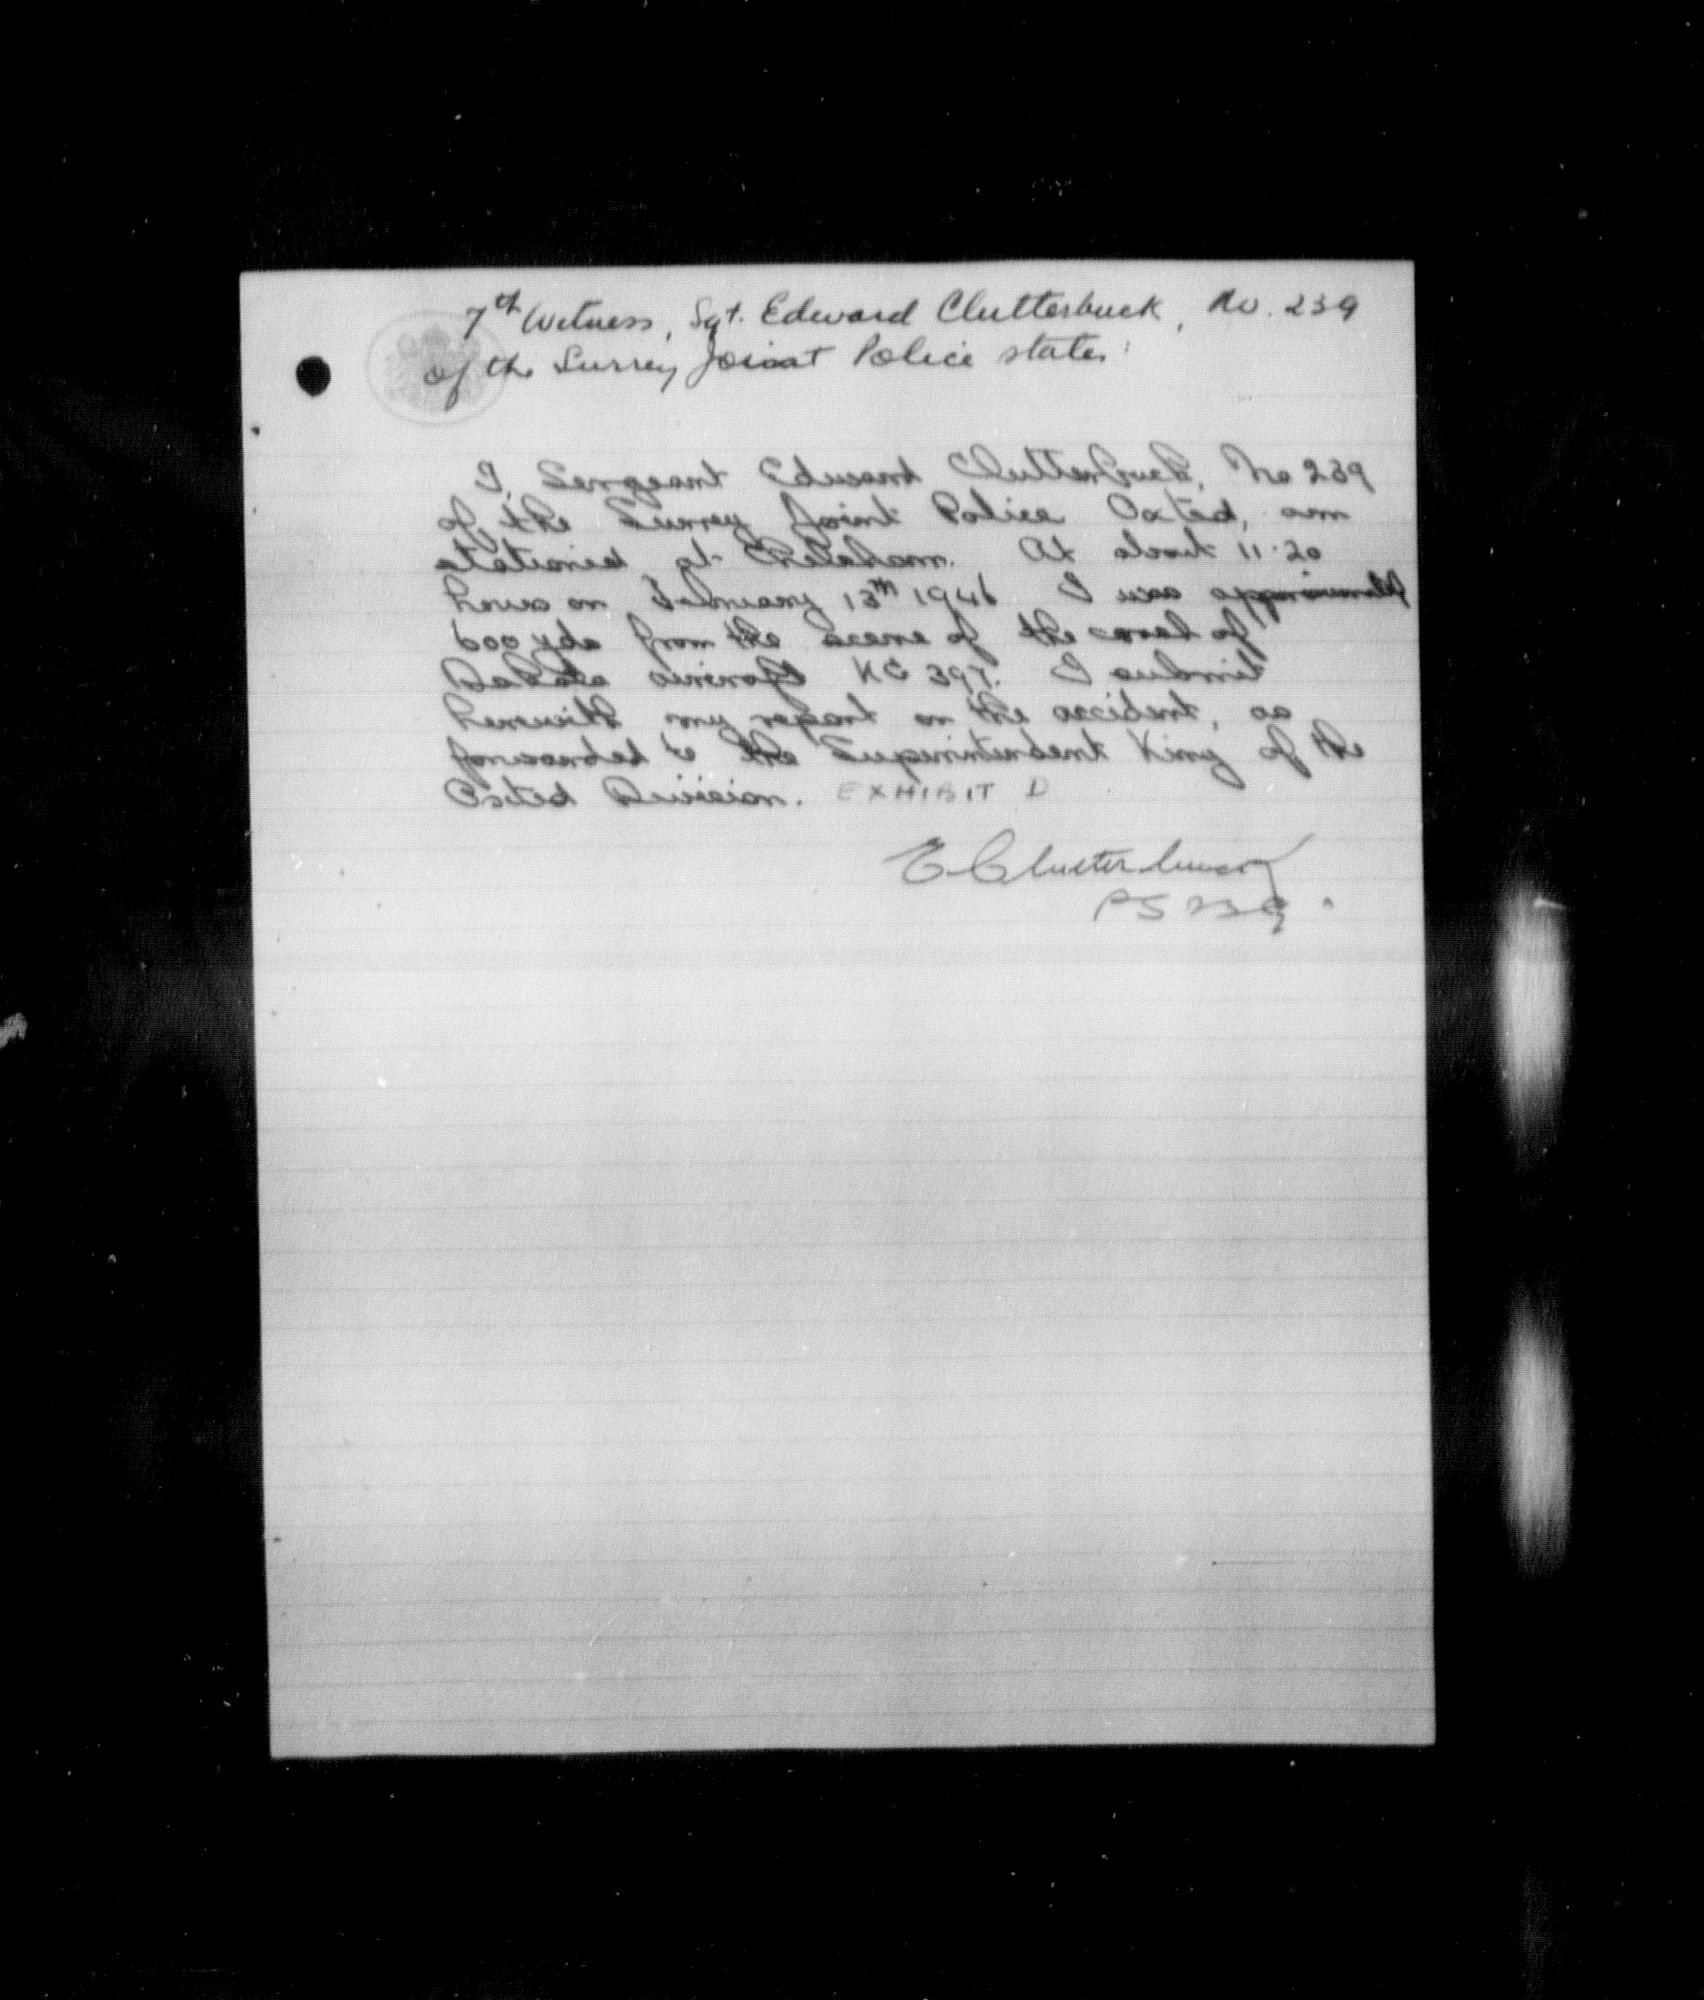 7th Witness, Sgt. Edward Clutterbuck, No. 239
of the Surrey Joint Police states:
I, Sergeant Edward Clutterbuck, No 239
of the Surrey Joint Police Oxted, am
stationed at Chelsham. At about 11.20
hours on February 13th 1946 I was approximately
600 yds from the scene of the crash of
Dakota aircraft KG 397. I submit
herewith my report on the accident, as
forwarded to the Superintendent King of the
Oxted Division. EXHIBIT D
E Clutterbuck
PS 239.